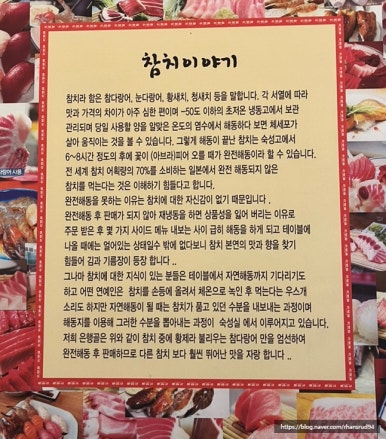 참치이야기
참치라 함은 참다랑어, 눈다랑어, 황새치, 청새치 등을 말합니다. 각 서열에 따라
맛과 가격의 차이가 아주 심한 편이며 –50도 이하의 초저온 냉동고에서 보관
관리되며 당일 사용할 양을 알맞은 온도의 염수에서 해동하다 보면 체세포가
살아 움직이는 것을 볼 수 있습니다. 그렇게 해동이 끝난 참치는 숙성고에서
6~8시간 정도의 후에 꽃이 (아브라)피어 오를 때가 완전해동이라 할 수 있습니다.
전 세계 참치 어획량의 70%를 소비하는 일본에서 완전 해동되지 않은
참치를 먹는다는 것은 이해하기 힘들다고 합니다.
완전해동을 못하는 이유는 참치에 대한 자신감이 없기 때문입니다 .
완전해동 후 판매가 되지 않아 재냉동을 하면 상품성을 잃어 버리는 이유로
주문 받은 후 몇 가지 사이드 메뉴 내보내는 사이 급히 해동을 하게 되고 테이블에
나올 때에는 얼어있는 상태일수 밖에 없다보니 참치 본연의 맛과 향을 찾기
힘들어 김과 기름장이 등장 합니다 ..
그나마 참치에 대한 지식이 있는 분들은 테이블에서 자연해동까지 기다리기도
하고 어떤 연예인은 참치를 손등에 올려서 체온으로 녹인 후 먹는다는 우스개
소리도 하지만 자연해동이 될 때는 참치가 품고 있던 수분을 내보내는 과정이며
해동지를 이용해 그러한 수분을 뽑아내는 과정이 숙성실 에서 이루어지고 있습니다.
저희 은행골은 위와 같이 참치 중에 황제라 불리우는 참다랑어 만을 엄선하여
완전해동 후 판매하므로 다른 참치 보다 훨씬 뛰어난 맛을 자랑 합니다 ..
https://blog.naver.com/rhansrud94